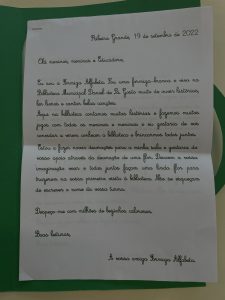 Ribeira Grande, 19 de setembro de 2022
Olá meninos, meninas e Educadora,
Eu sou a Formiga Alfabeta. Sou uma formiga-branca e vivo na
Biblioteca Municipal Daniel de Sá. Gosto muito de ouvir histórias,
ler livros e cantar belas canções.
Aqui na biblioteca contamos muitas histórias e fazemos muitos
jogos com todos os meninos e meninas e eu gostaria de vos
convidar a virem conhecer a biblioteca e brincarmos todos juntos.
Estou a fazer novas decorações para a minha sala e gostaria do
vosso apoio através da decoração de uma flor. Deixem a vossa
imaginação voar e todos juntos façam uma linda flor para
trazerem na vossa primeira visita à biblioteca. Não se esqueçam
de escrever o nome da vossa turma.
Despeço-me com milhões de beijinhos
Boas leituras,
A vossa amiga Formiga Alfabeta.